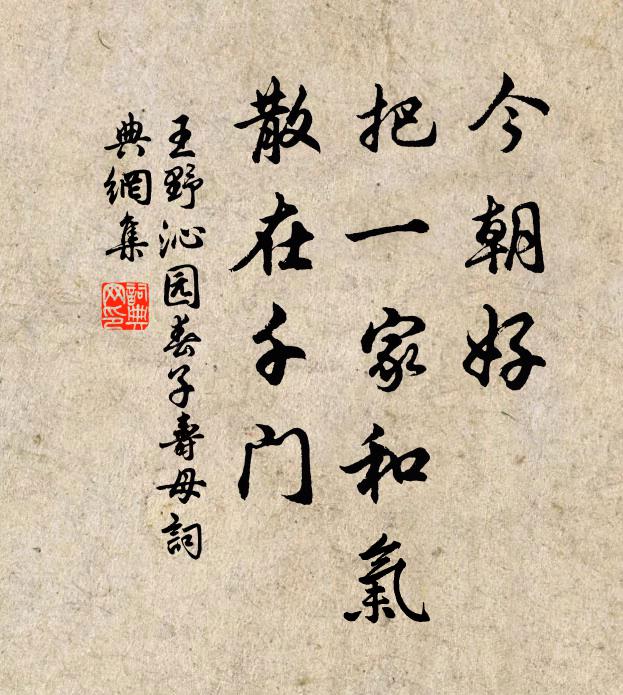 今朝好
把一家和氣
散在千门
王野沁园春子壽母詞
典網集
詞典
网印